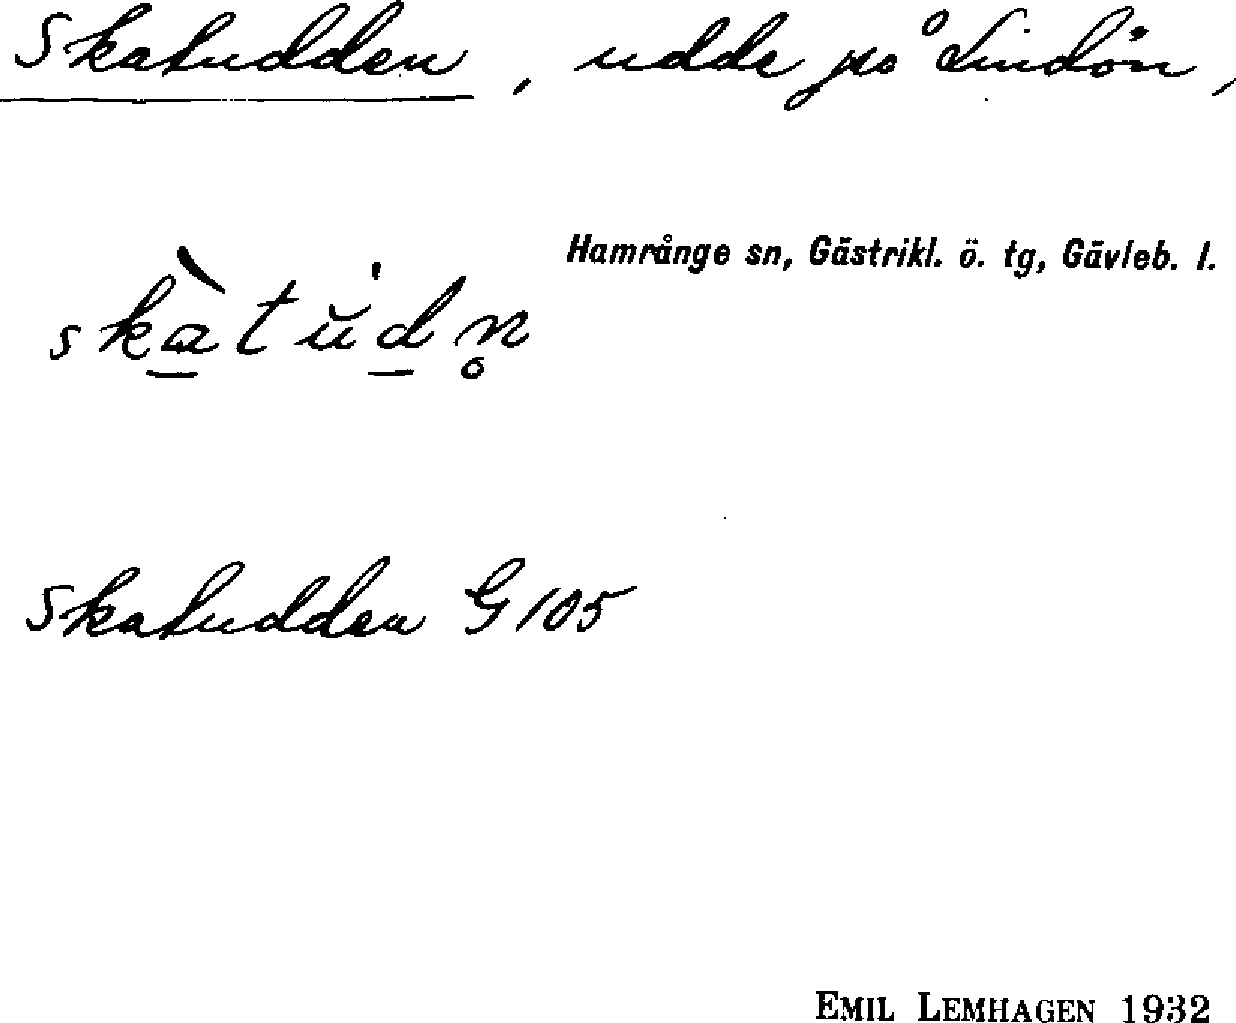 Skatudden, udde på Lindön,
Hamrånge sn, Gästrikl. ö. tg, Gävleb. l.
skàtŭdn̥
Skatudden G 105
EMIL LEMHAGEN 1932